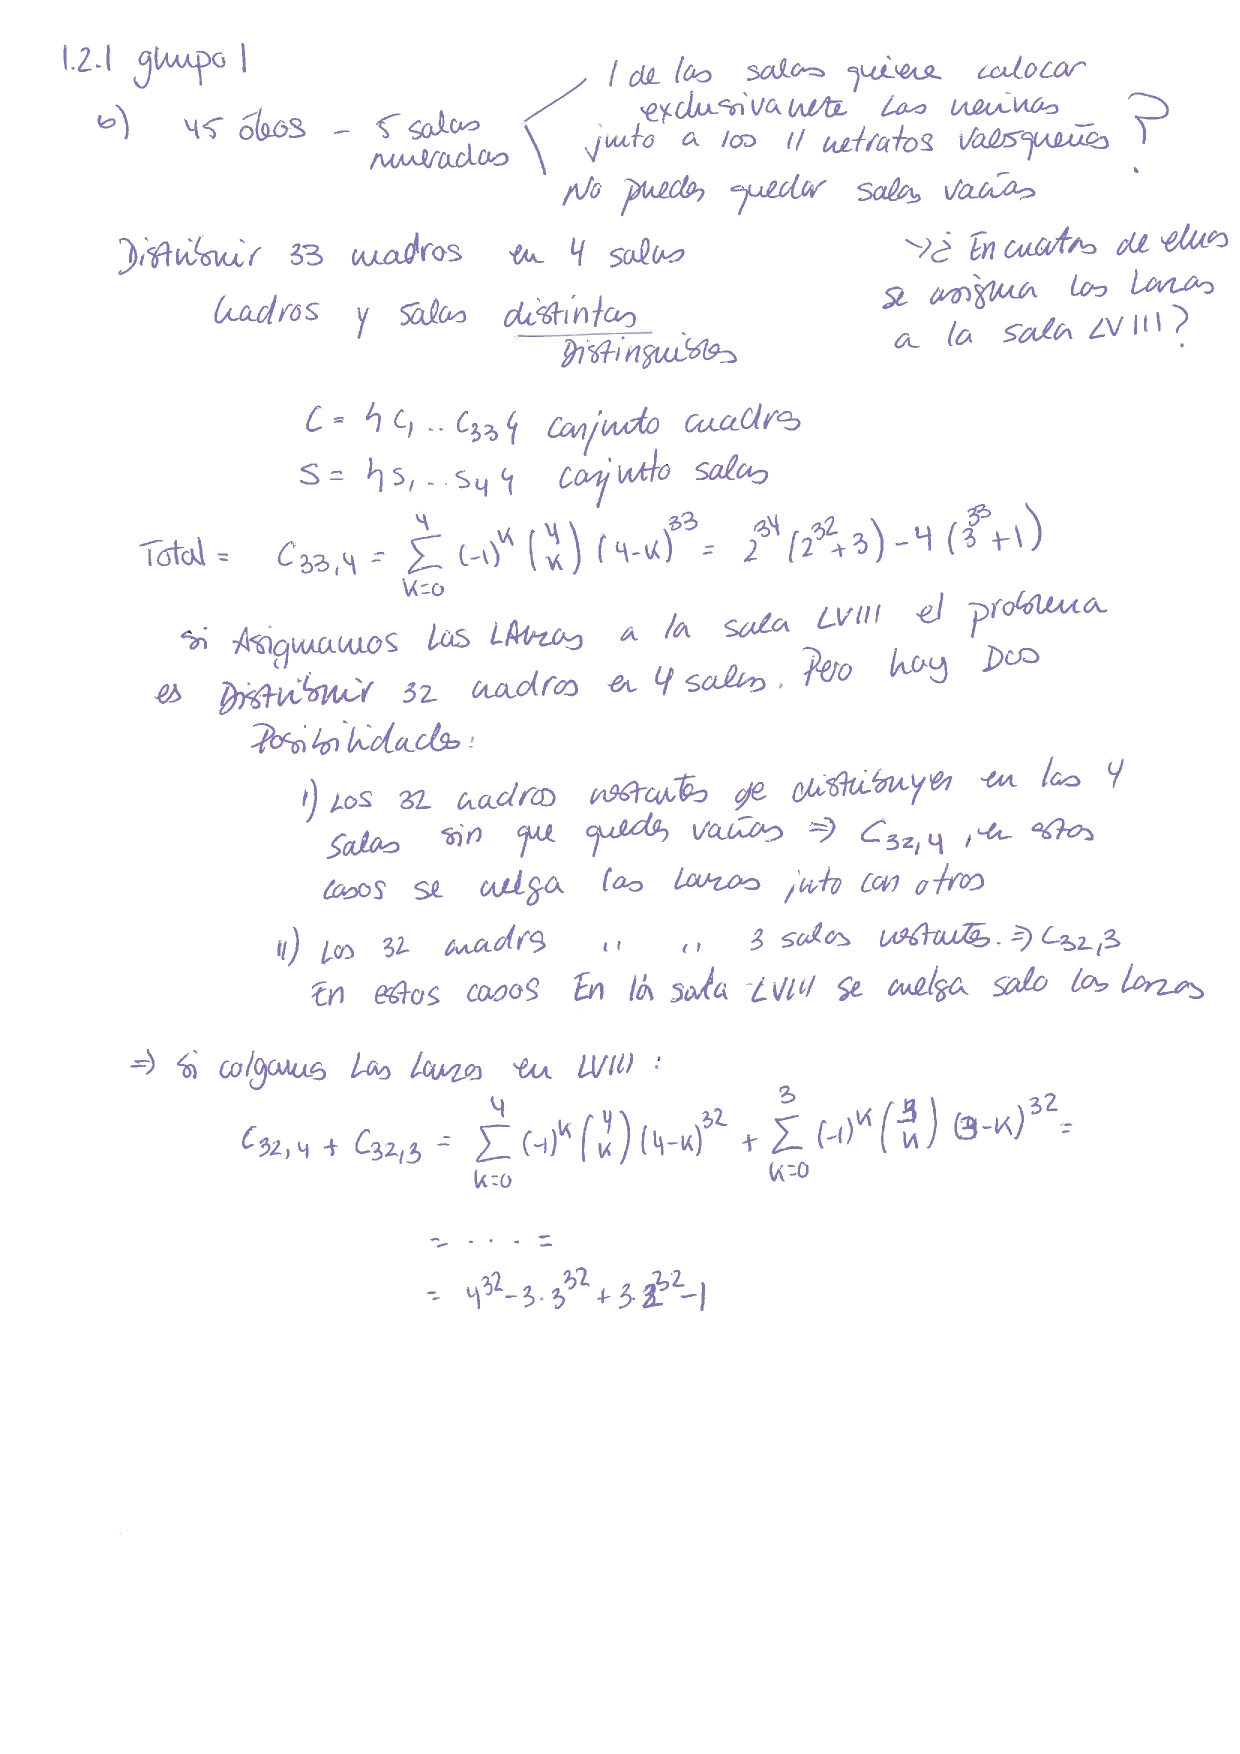 1.2.1 grupo 1
b) 45 óleos - 5 salas numeradas
1 de las salas quiere colocar
exclusivamete Las neninas
junto a los 11 retratos Valsqueños ?
No puedes quedar salas vacías
Distribuir 33 cuadros en 4 salas
Cuadros y salas distintas
Distinguibles
→ ¿ En cuatos de ellos
se asigna las Lanzas
a la sala LVIII?
C = {c₁ .. c₃₃} conjunto cuadros
S = {s₁ .. s₄} conjutto salas
Total = C₃₃,₄ = ∑_{k=0}^{4} (-1)^k (4 k) (4-k)^33 = 2^34 (2^32+3) - 4 (3^33+1)
si Asignamos las LAnzas a la sala LVIII el problema
es Distribuir 32 cuadros en 4 salas. Pero hay Dos
Posibilidades:
i) Los 32 cuadros restantes se distribuyen en las 4
Salas sin que quedes vacías ⇒ C₃₂,₄ , en estos
casos se cuelga las Lanzas juto con otros
ii) Los 32 cuadrs " " 3 salas restantes. ⇒ C₃₂,₃
En estos casos En la sala LVIII se cuelga solo las lanzas
⇒ si colgamos Las Lanzas en LVIII :
C₃₂,₄ + C₃₂,₃ = ∑_{k=0}^{4} (-1)^k (4 k) (4-k)^32 + ∑_{k=0}^{3} (-1)^k (3 k) (3-k)^32 =
= . . . . =
= 4^32 - 3·3^32 + 3·2^32 - 1